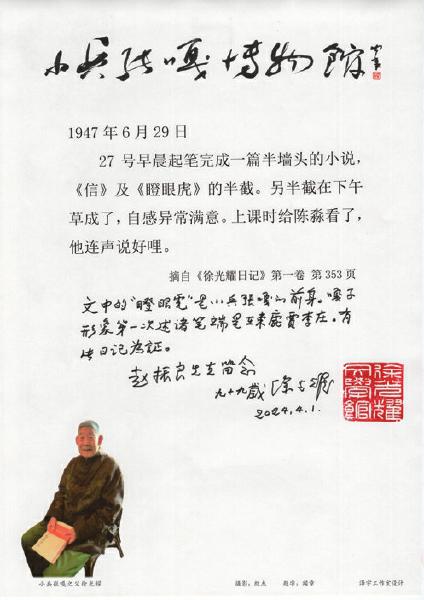 小兵张嘎博物馆
1947年6月29日
27号早晨起笔完成一篇半墙头的小说，
《信》及《瞪眼虎》的半截。另半截在下午
草成了，自感异常满意。上课时给陈淼看了，
他连声说好哩。
摘自《徐光耀日记》第一卷 第353页
文中的“瞪眼虎”是小兵张嘎的前身。嘎子
形象第一次述诸笔端是在束鹿贾李庄。有
此日记为证。
赵振良先生留念
九十九岁 徐光耀
2024.4.1.
徐光耀文学馆
小兵张嘎之父徐光耀